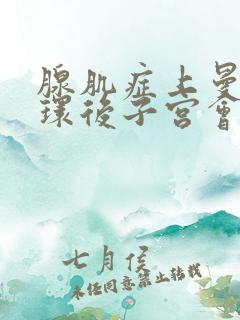 腺肌症上曼
環後子宮會
七月侯
未经同意禁止转载